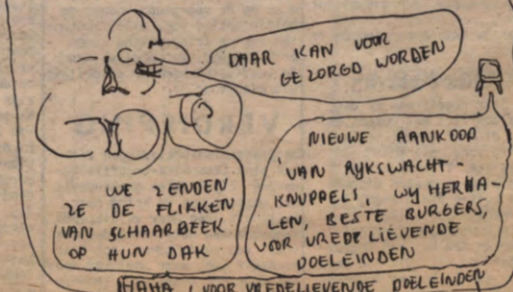 DAAR KAN VOOR
GEZORGD WORDEN
WE ZENDEN
ZE DE FLIKKEN
VAN SCHAARBEEK
OP HUN DAK
NIEUWE AANKOOP
VAN RYKSWACHT-
KNUPPELS, WY HERHA-
LEN, BESTE BURGERS,
VOOR VREDELIEVENDE
DOELEINDEN
HAHA, VOOR VREDELIEVENDE DOELEINDEN